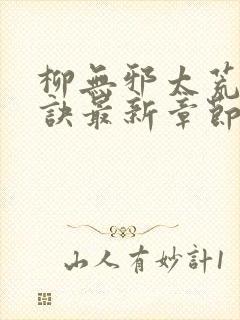 柳無邪太荒
訣最新章節
山人有妙計1